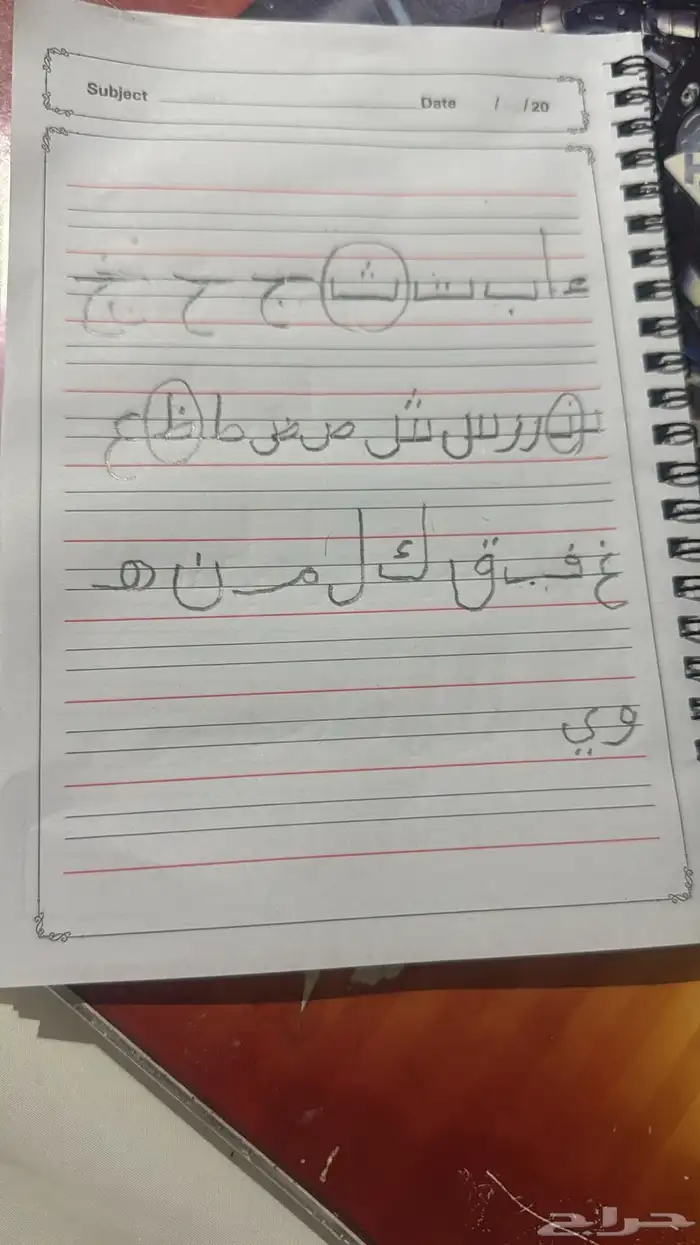 Subject Date / /20
ء ا ب ت ث ج ح خ
ذ ر ز س ش ص ض ط ظ ع
غ ف ق ك ل م ن هـ
و ي
حراج